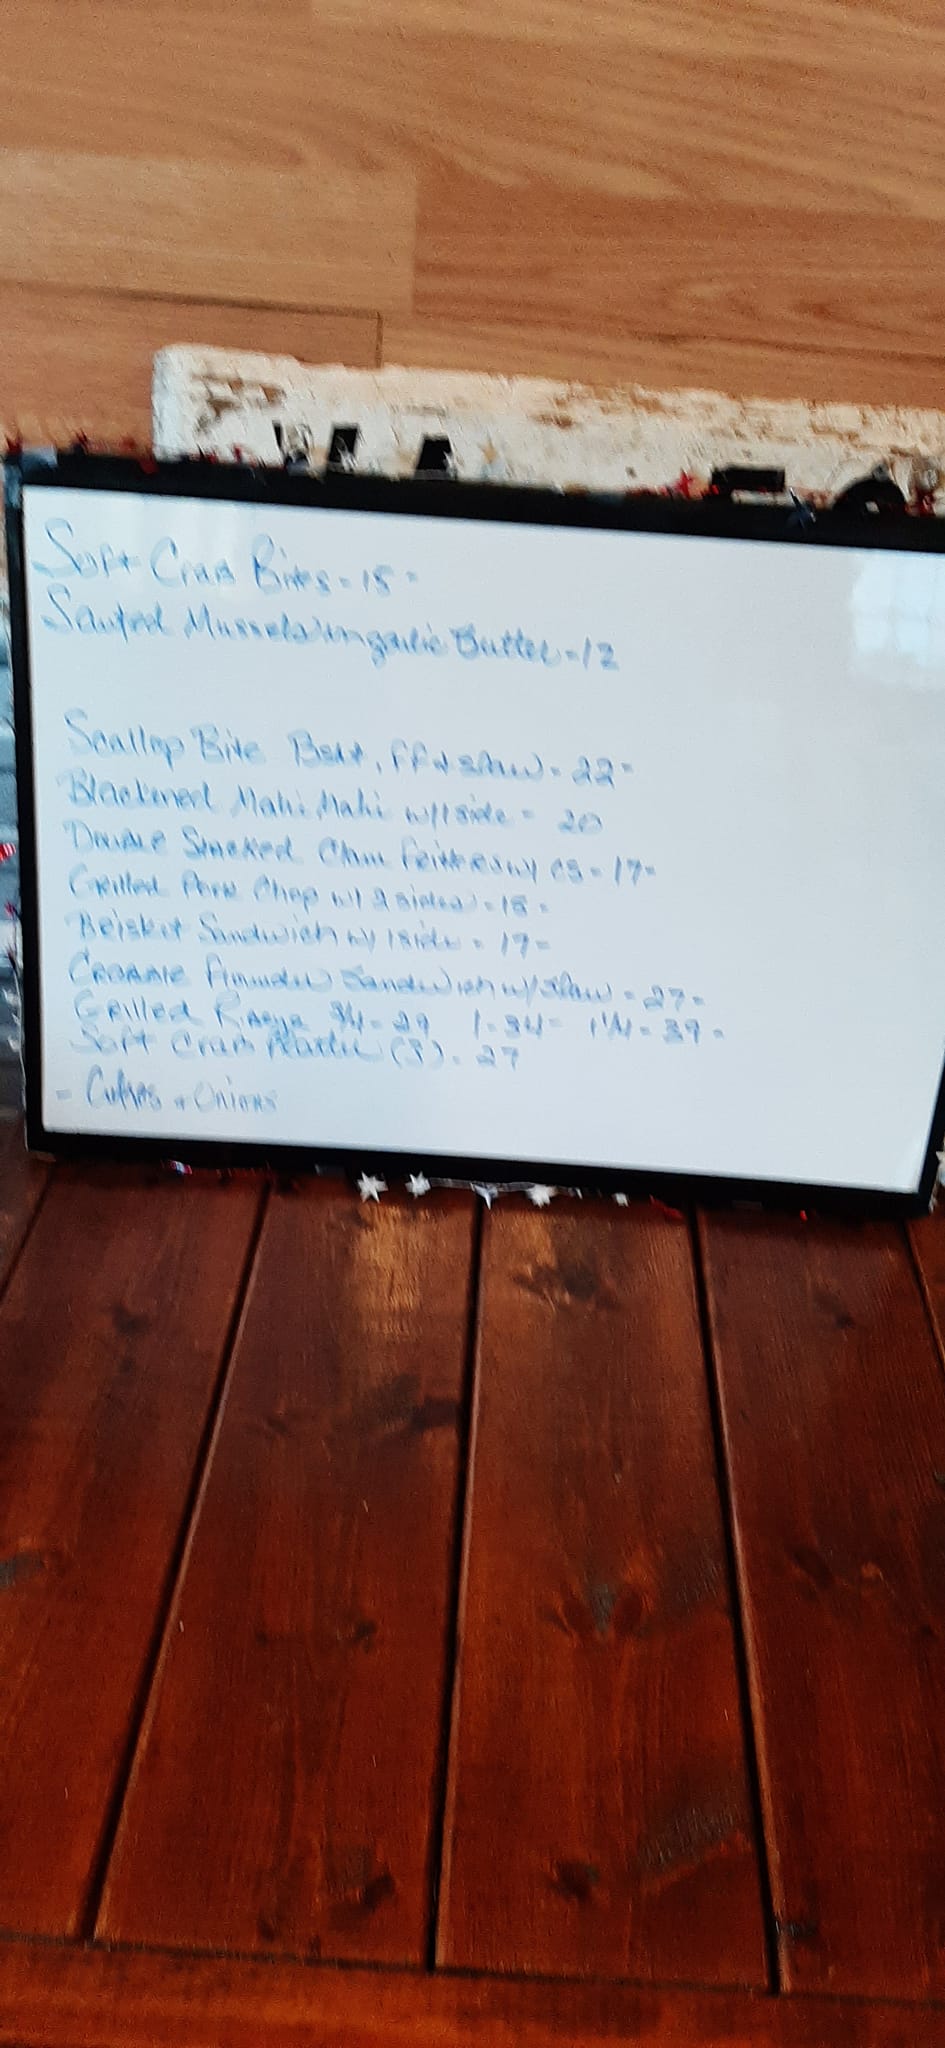 Soft Crab Bites - 15 -
Sauted Mussels in garlic Butter - 12
Scallop Bite Bskt, FF & slaw - 22 -
Blackened Mahi Mahi w/1 side - 20
Double Stacked Clam Fritters w/ CS - 17 -
Grilled Pork Chop w/ 2 sides - 18 -
Brisket Sandwich w/ 1 side - 19 -
Flounder Sandwich w/ Slaw - 27 -
Grilled 3/4 - 29 1 - 34 - 1 1/4 - 39 -
Soft Crab Platter (3) - 27
- Cukes & Onions